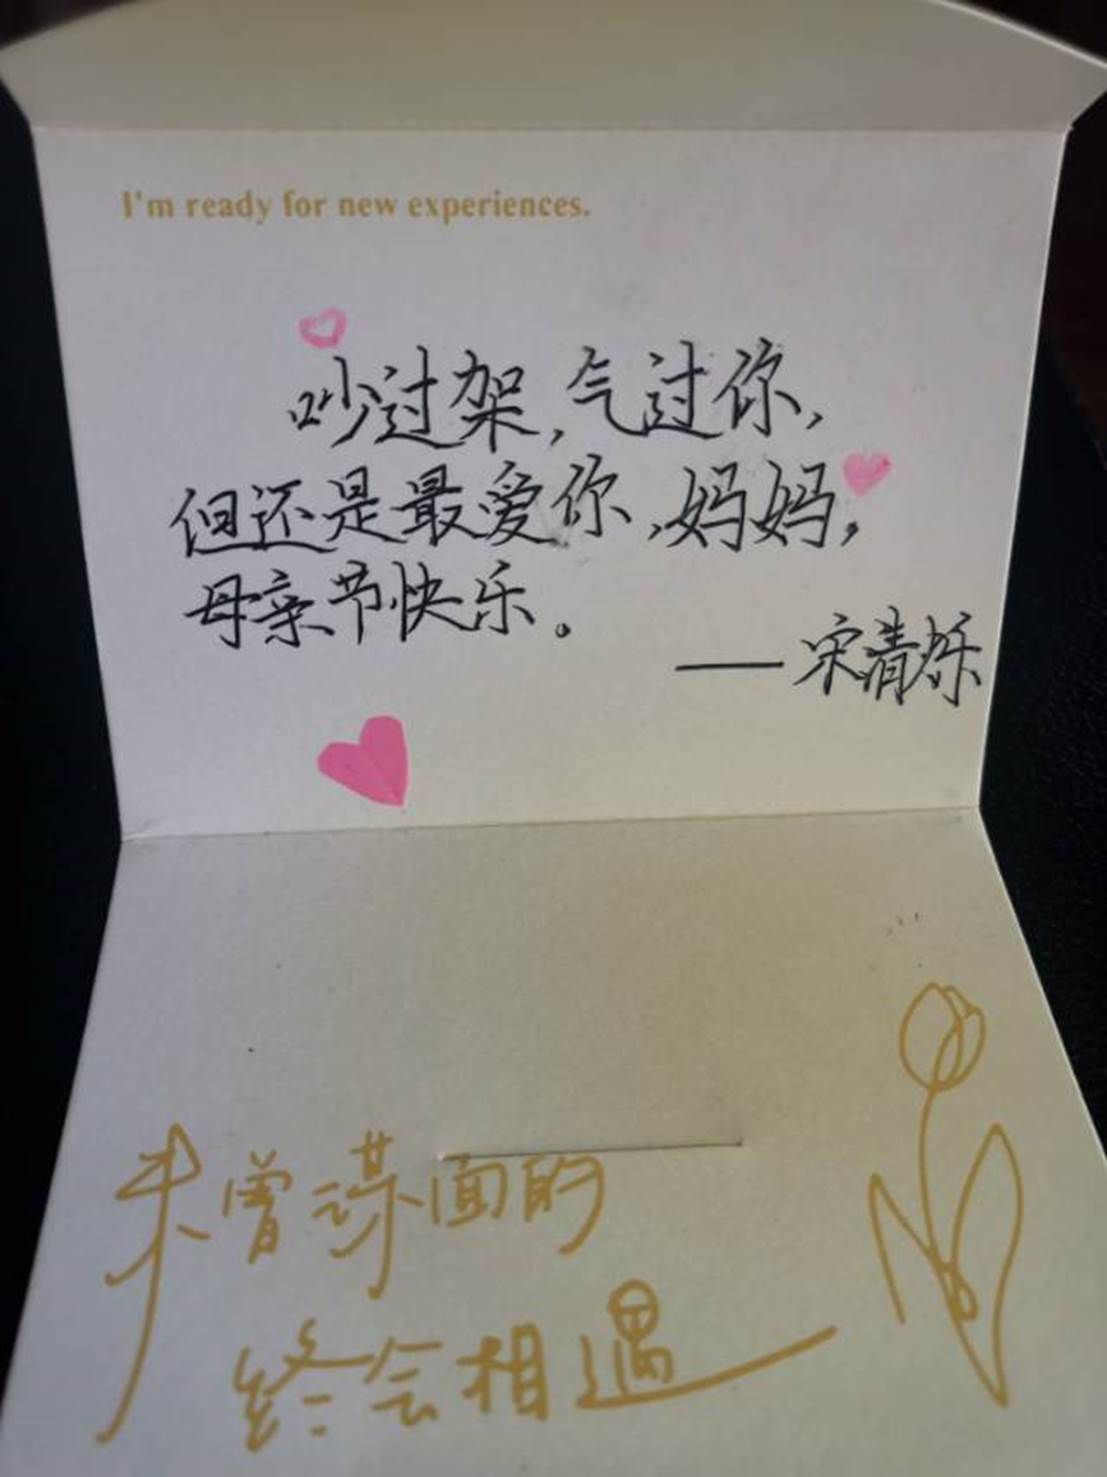 I'm ready for new experiences.
吵过架,气过你,
但还是最爱你,妈妈,
母亲节快乐。
——宋清烁
未曾谋面的
终会相遇